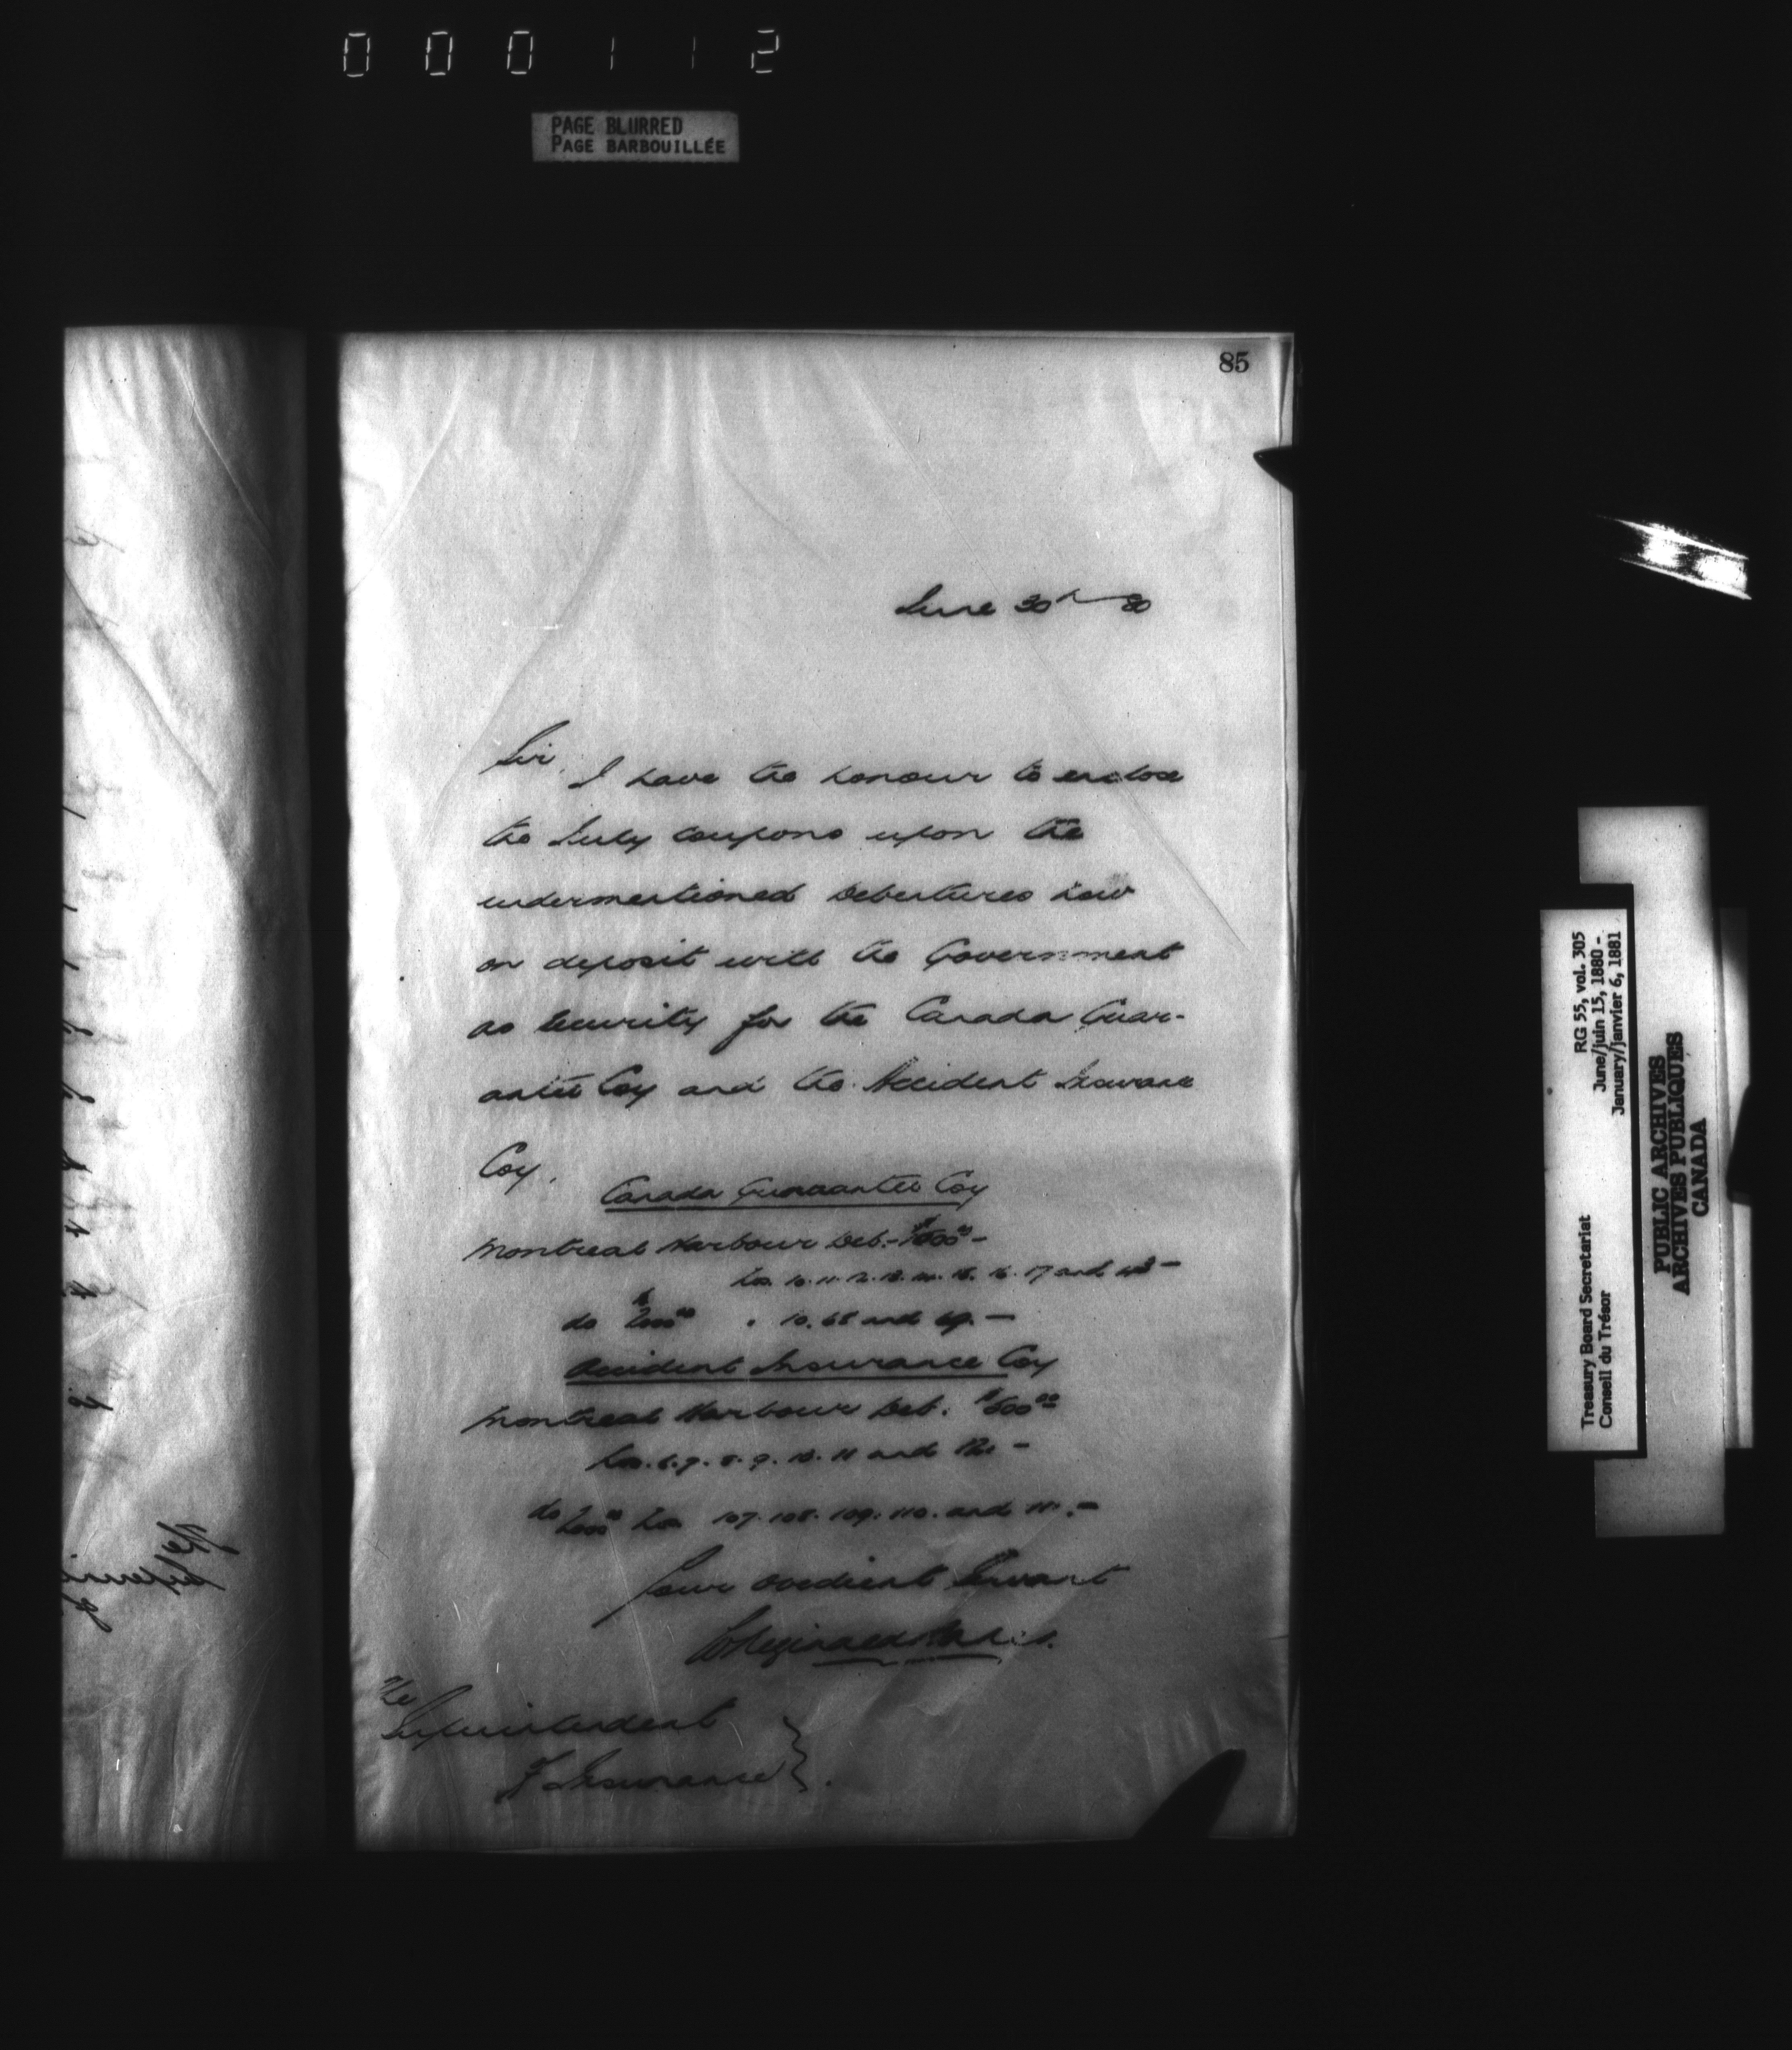 000112
PAGE BLURRED
PAGE BARBOUILLÉE
85
June 30th 80
Sir,
I have the honour to enclose
the July coupons upon the
undermentioned Debentures now
on deposit with the Government
as security for the Canada Guar-
antee Coy and the Accident Insurance
Coy.
Canada Guarantee Coy
Montreal Harbour Deb.
Nos. 10. 11. 12. 13. 14. 15. 16. 17 and
do $2000 00 " 10. 68 and 69. —
Accident Insurance Coy
Montreal Harbour Deb. $500 00
Nos. 6. 7. 8. 9. 10. 11 and 12. —
do Nos 107. 108. 109. 110. and 111. —
Your obedient Servant
The
Superintendent
of Insurance
RG 55, vol. 305
June/juin 15, 1880 -
January/janvier 6, 1881
Treasury Board Secretariat
Conseil du Trésor
PUBLIC ARCHIVES
ARCHIVES PUBLIQUES
CANADA